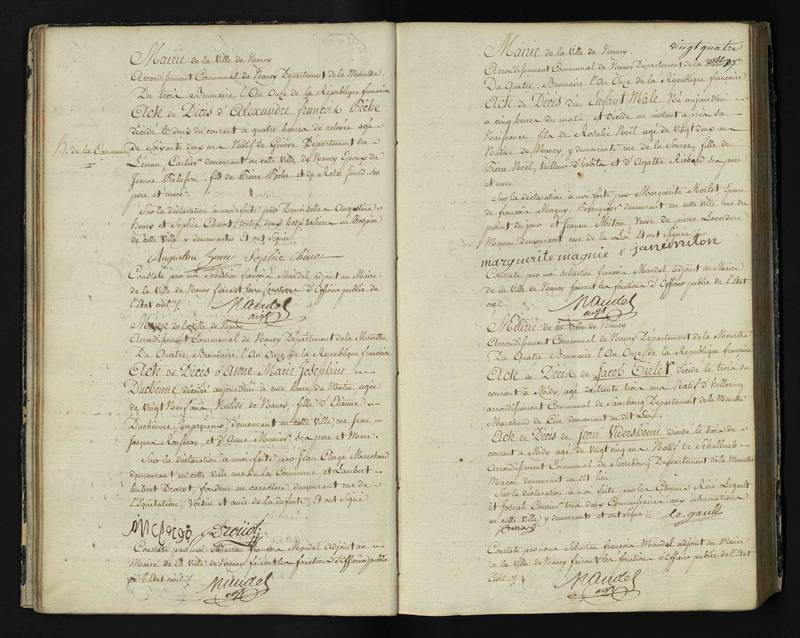 Mairie de la Ville de Nancy
Arrondissement Communal de Nancy Département de la Meurthe
Du trois Brumaire l'An Onze de la République française
Acte de Décès d'Alexandre françois Pêche
décédé le deux du courant à quatre heures de relevée agé
de soixante deux ans Natif de Genève Département du
Léman demeurant en cette Ville de Nancy Epoux de
Jeanne fils de Pierre Pêche et de Rose ses
pere et mere.
R. de la Commune
Sur la déclaration à moi faite par Demoiselle Augustine
Henry et Sophie toutes deux hospitalieres
de cette Ville y demeurantes et ont signé
Augustine henry Sophie
Constaté par moi Sébastien françois Mandel adjoint au Maire
de la Ville de Nancy faisant les fonctions d'Officier public de
l'Etat civil ./.
Mandel
adjt
Mairie de la Ville de Nancy
Arrondissement Communal de Nancy Département de la Meurthe
Du Quatre Brumaire l'An Onze de la République française
Acte de Décès d'Anne Marie Josephine
Duchenne décédée aujourd'hui à une heure du Matin agée
de Vingt Neuf ans, Native de Nancy, fille d'Etienne
Duchenne, demeurant en cette Ville rue Jean
Jacques Rousseau, et d'Anne ses pere et Mere.
Sur la déclaration à moi faite par Jean Marchand
demeurant en cette Ville rue de la Commune et Lambert
hubert Drouot, fondeur en caractère demeurant rue de
l'Equitation, Voisin et amis de la defunte, Et ont signé
Drouot
Constaté par moi Sébastien françois Mandel Adjoint au
Maire de la Ville de Nancy faisant les fonctions d'Officier public
de l'Etat civil ./.
Mandel
adjt
vingt quatre
Mairie de la Ville de Nancy
Arrondissement Communal de Nancy Département de la Meurthe
Du Quatre Brumaire l'An Onze de la République française
Acte de Décès d'un Enfant Male Né aujourd'hui
à cinq heures du matin et décédé un instant après sa
Naissance fils de Rosalie Noël agée de Vingt deux ans
Native de Nancy y demeurante rue de la Source, fille de
Pierre Noël, tailleur d'habits et d'Agathe Richard ses pere
et mere
Sur la déclaration à moi faite par Marguerite Morlot Epouse
de françois Magny, Perruquier demeurant en cette Ville rue du
point du jour et Jeanne Mitton Veuve de pierre
Maçon demeurante rue de la Loi Et ont signé
marguerite magnie janemiton
Constaté par moi Sébastien françois Mandel adjoint au Maire
de la Ville de Nancy faisant les fonctions d'Officier public de l'Etat
civil
Mandel
adjt
Mairie de la Ville de Nancy
Arrondissement Communal de Nancy Département de la Meurthe
Du Quatre Brumaire l'An Onze de la République française
Acte de Décès de Jacob décédé le trois du
courant à Midy, agé de trente trois ans Natif d'
arrondissement Communal de Sarrebourg Département de la Meurthe
Marchand de demeurant au dit Lieu.
Acte de Décès de Jean décédé le trois du
courant à Midy agé de vingt cinq ans Natif de
Arrondissement Communal de Sarrebourg Département de la Meurthe
Maçon demeurant au dit lieu
Sur la déclaration à moi faite par les Citoyens Réné Legault
et Joseph tous deux Commissaires aux inhumations
en cette Ville y demeurants et ont signé ./. le gault
Constaté par nous Sébastien françois Mandel adjoint au Maire
de la Ville de Nancy faisant les fonctions d'Officier public de l'Etat
civil ./.
Mandel
adjt